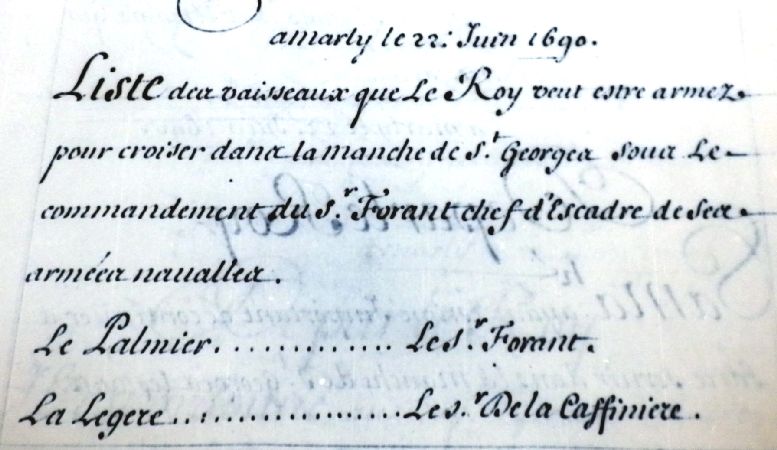 amarly le 22: Juin 1690.
Liste des vaisseaux que Le Roy veut estre armez
pour croiser dans la manche de S.t Georges sous Le
commandement du S.r Forant chef d'Escadre de ses
armées navalles.
Le Palmier. . . . . . . . . . . . . Le S.r Forant.
La Legere. . . . . . . . . . . . . . . . . Le S.r De la Caffiniere.